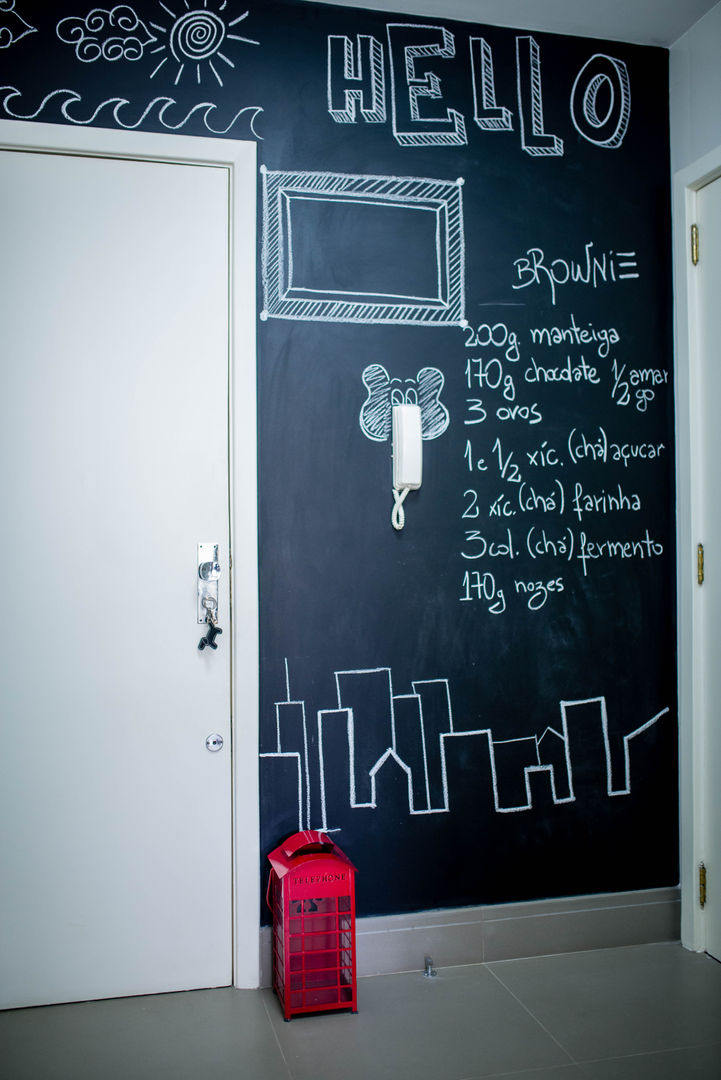 HELLO
BROWNIE
200g. manteiga
170g chocolate 1/2 amar
go
3 ovos
1 e 1/2 xíc. (chá) açucar
2 xíc. (chá) farinha
3 col. (chá) fermento
170g nozes
TELEPHONE